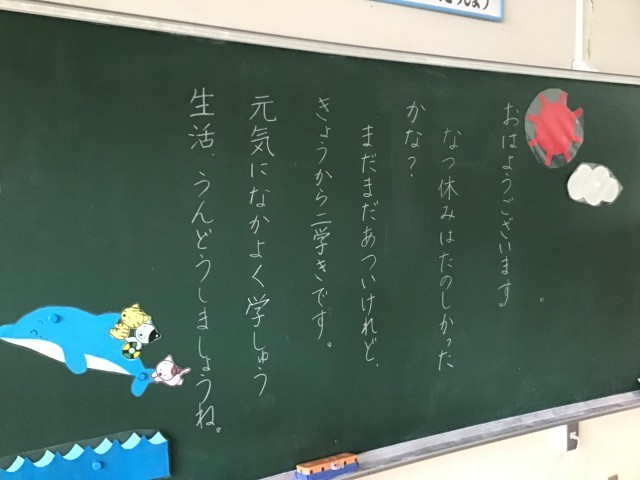 おはようございます。
なつ休みはたのしかった
かな？
まだまだあついけれど、
きょうから二学きです。
元気になかよく学しゅう
生活、うんどうしましょうね。